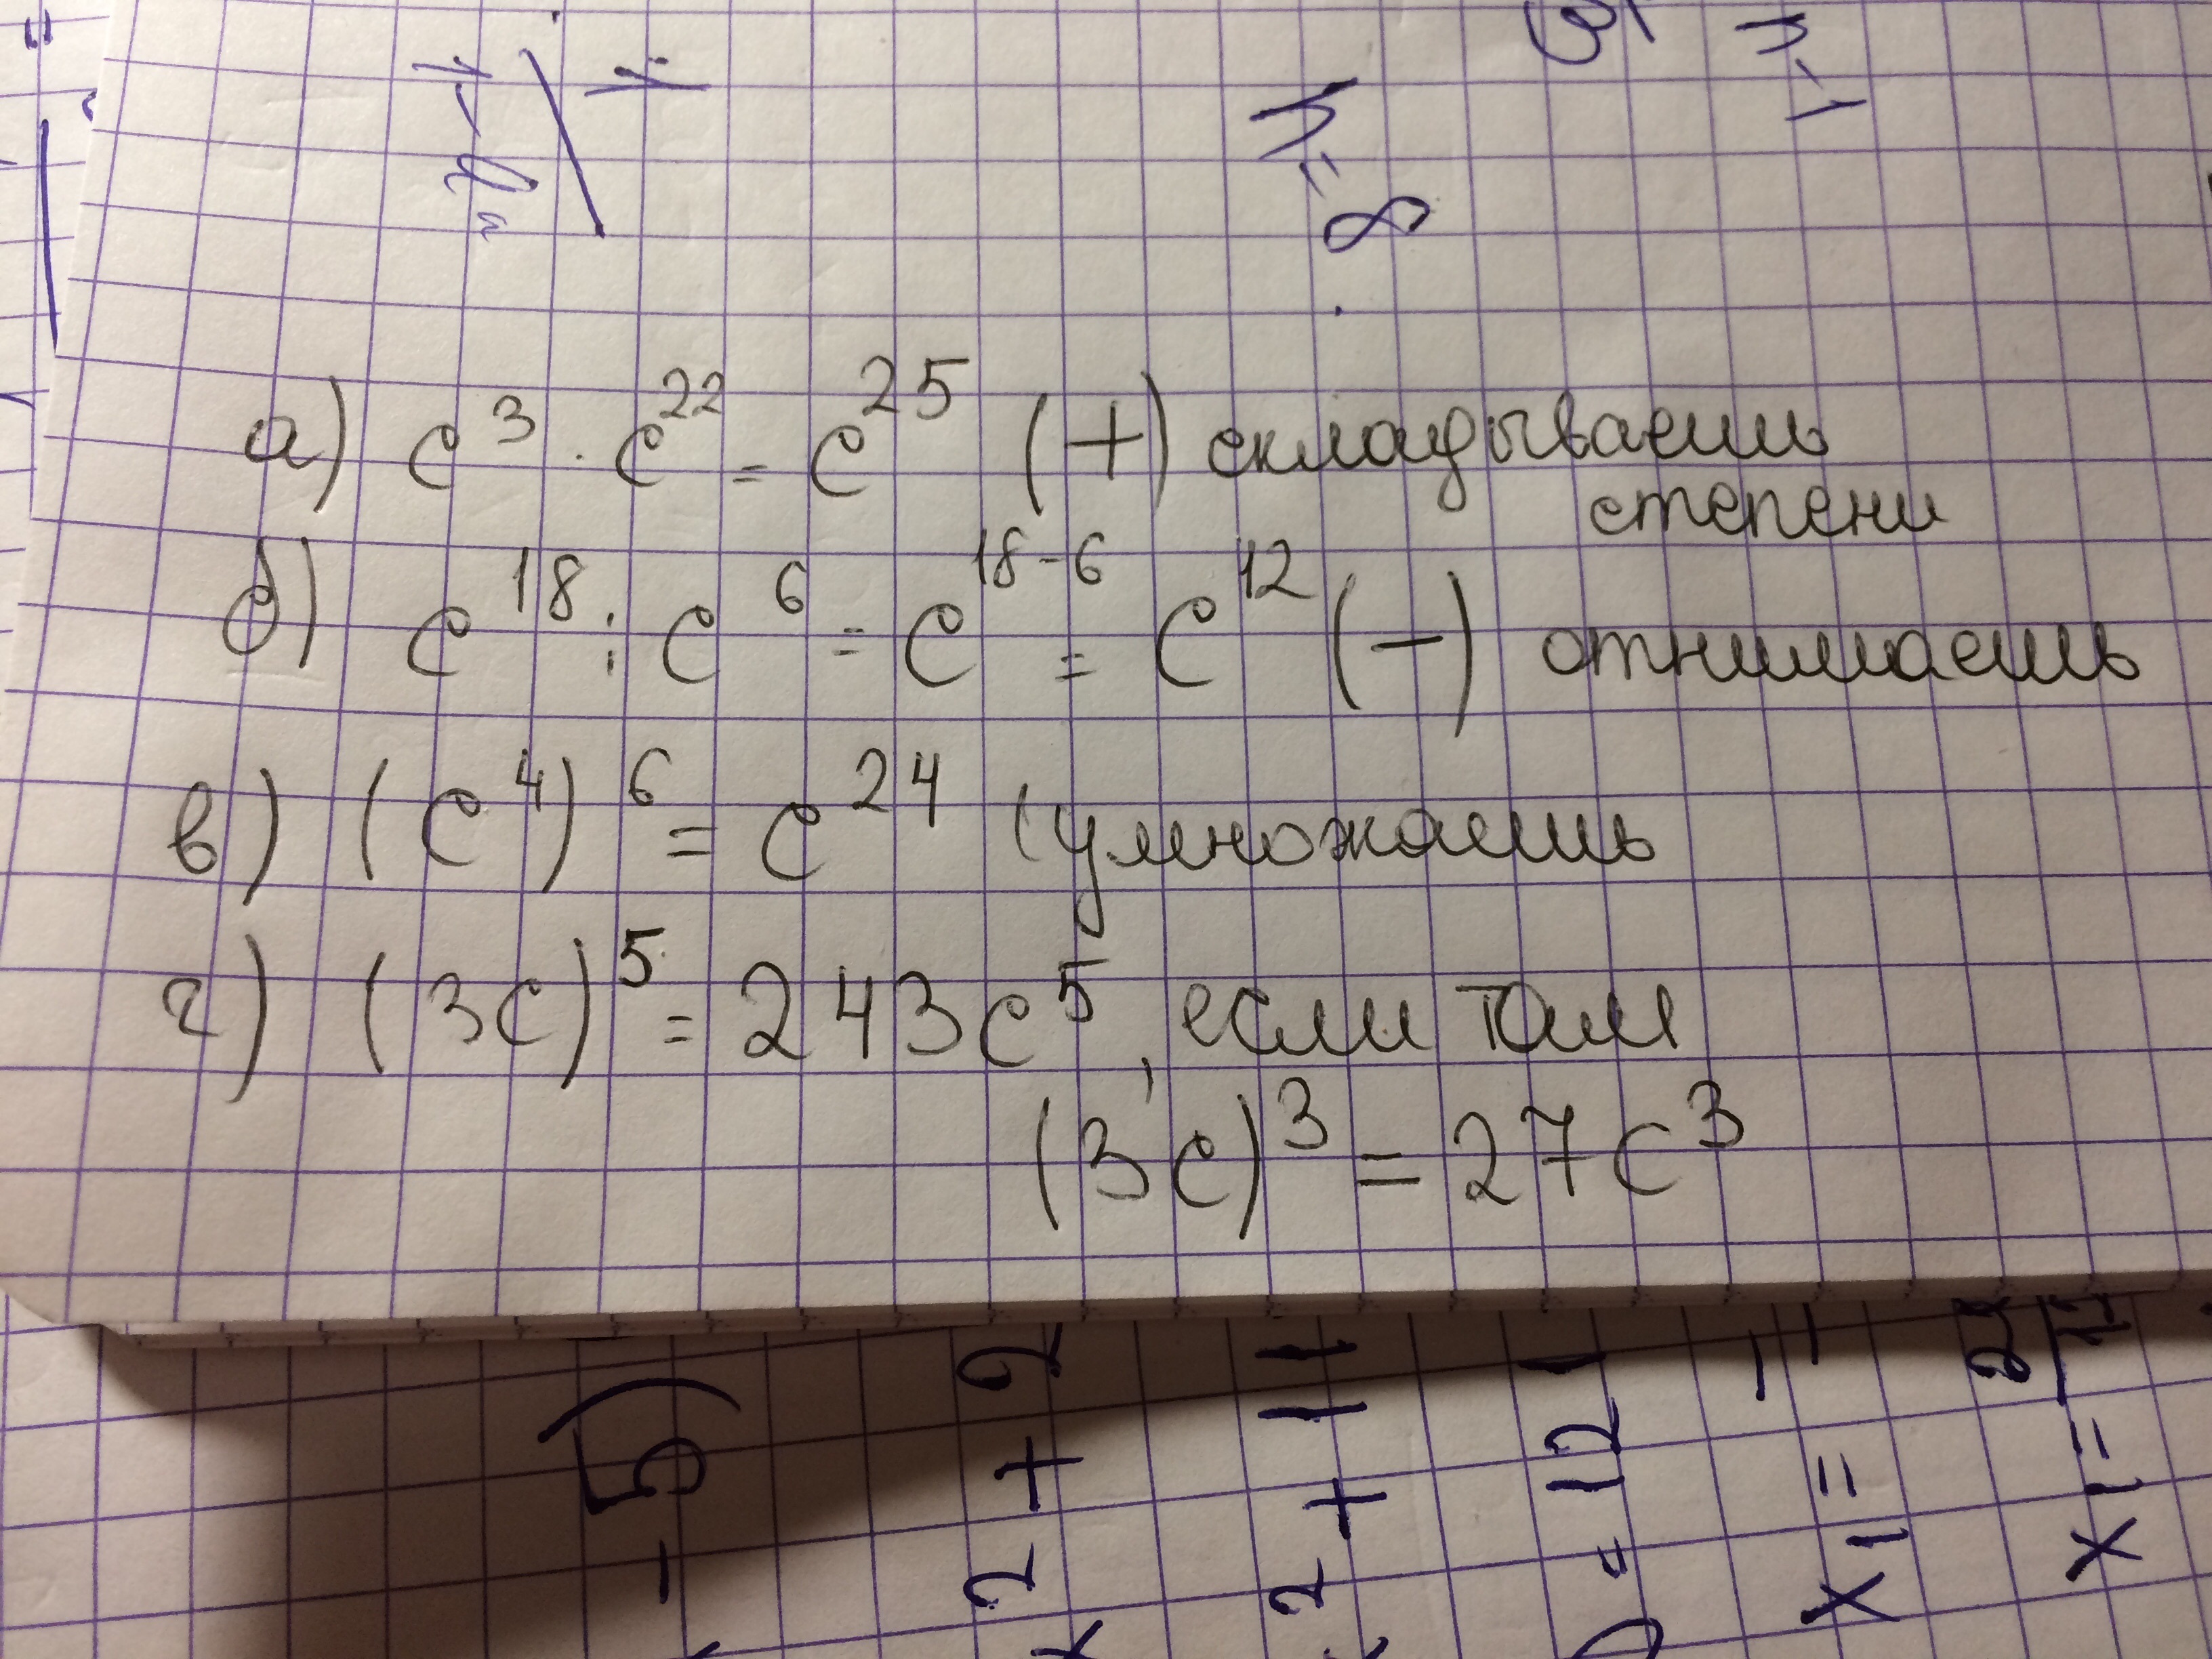 а) c³ · c²² = c²⁵ (+) складываешь
степени
б) c¹⁸ : c⁶ = c¹⁸⁻⁶ = c¹² (−) отнимаешь
в) (c⁴)⁶ = c²⁴ (умножаешь
г) (3c)⁵ = 243c⁵, если там
(3c)³ = 27c³